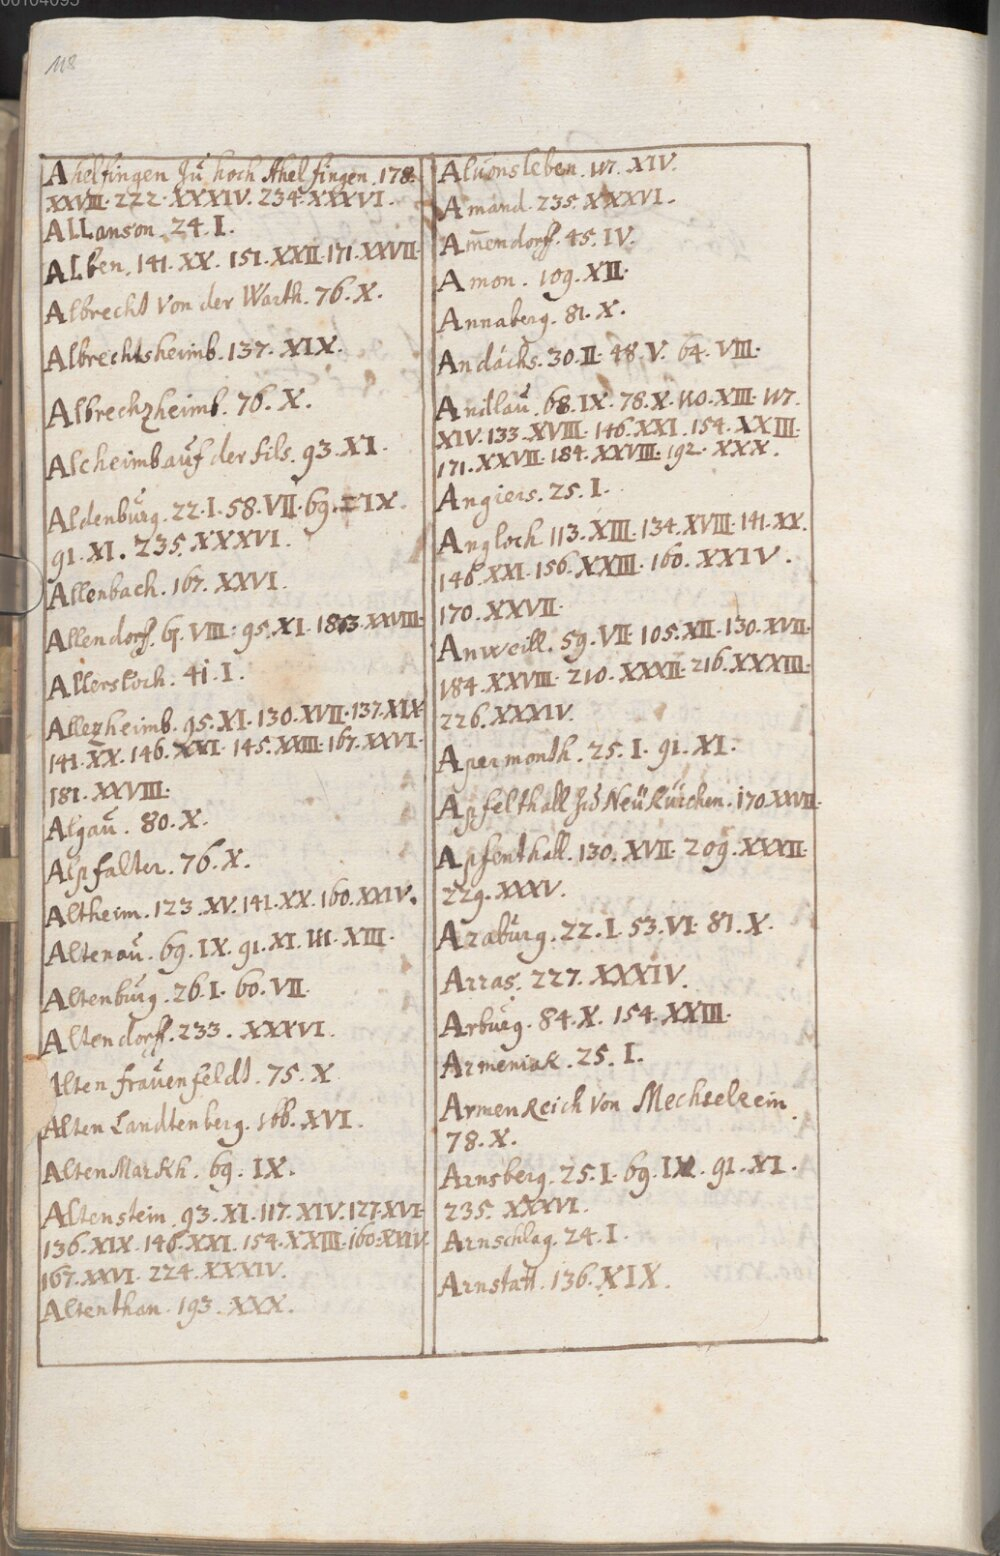 118
Ahelfingen Zu hoch Ahelfingen. 178.
XXVIII. 222. XXXIV. 234. XXXVI.
Allanson. 24. I.
Alben. 141. XX. 151. XXII. 171. XXVII.
Albrecht von der Warth. 76. X.
Albrechtsheimb. 137. XIX.
Albrechzheimb. 76. X.
Alcheimb auf der fils. 93. XI.
Aldenbŭrg. 22. I. 58. VII. 69. IX.
91. XI. 235. XXXVI.
Allenbach. 167. XXVI.
Allendorff. VIII. 95. XI. XXVIII.
Allersloch. 41. I.
Allezheimb. 95. XI. 130. XVII. 137. XIX.
141. XX. 146. XXI. 145. XXIII. 167. XXVI.
181. XXVIII.
Algaŭ. 80. X.
Alpfalter. 76. X.
Altheim. 123. XV. 141. XX. 160. XXIV.
Altenaŭ. 69. IX. 91. XI. 111. XIII.
Altenbŭrg. 26. I. 60. VII.
Altendorff. 233. XXXVI.
Alten fraŭenfeldt. 75. X.
Alten Landtenberg. XVI.
Alten Markh. 69. IX.
Altenstein. 93. XI. 117. XIV. 127. XVI.
136. XIX. 146. XXI. 154. XXIII. 160. XXIV.
167. XXVI. 224. XXXIV.
Altenthan. 193. XXX.
Alŭonsleben. 117. XIV.
Amand. 235. XXXVI.
Am̄endorff. 45. IV.
Amon. 109. XII.
Annaberg. 81. X.
Andächs. 30. II. 48. V. 64. VIII.
Andlaŭ. 68. IX. 78. X. 110. XIII. 117.
XIV. 133. XVIII. 146. XXI. 154. XXIII.
171. XXVII. 184. XXVIII. 192. XXX.
Angiers. 25. I.
Angloch 113. XIII. 134. XVIII. 141. XX.
146. XXI. 156. XXIII. 160. XXIV.
170. XXVII.
Anweill. 59. VII. 105. XII. 130. XVII.
184. XXVIII. 210. XXXII. 216. XXXIII.
226. XXXIV.
Apermonth. 25. I. 91. XI.
Apfelthall Neŭkürchen. 170. XXVII.
Apfenthall. 130. XVII. 209. XXXII.
229. XXXV.
Arabŭrg. 22. I. 53. VI. 81. X.
Arras. 227. XXXIV.
Arbŭrg. 84. X. 154. XXIII.
Armeniak. 25. I.
Armenreich von Mechselrein
78. X.
Arnsberg. 25. I. 69. IX. 91. XI.
235. XXXVI.
Arnschlag. 24. I.
Arnstatt. 136. XIX.